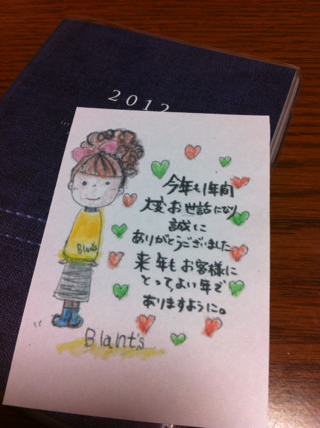 2012
今年も1年間
大変お世話になり
誠に
ありがとうございました
来年もお客様に
とってよい年で
ありますように。
Blants
Blant's